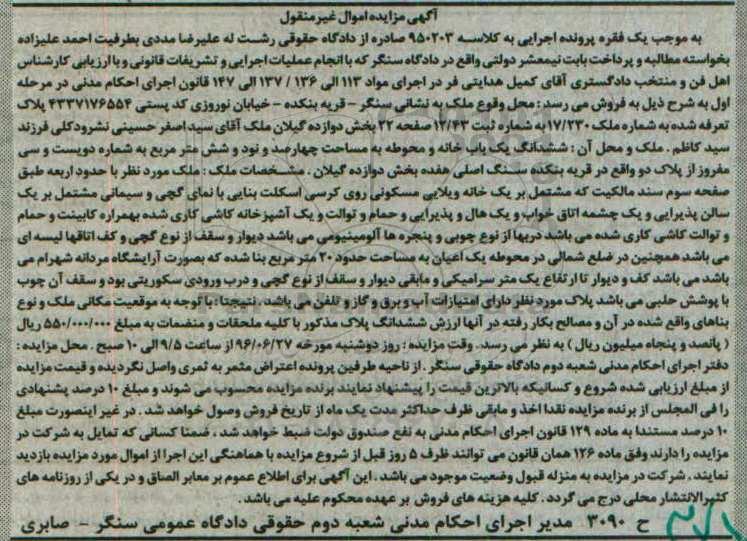 آگهی مزایده اموال غیرمنقول
به موجب یک فقره پرونده اجرایی به کلاسه ۹۵۰۲۰۳ صادره از دادگاه حقوقی رشت له علیرضا مددی بطرفیت احمد علیزاده
بخواسته مطالبه و پرداخت بابت نیمعشر دولتی واقع در دادگاه سنگر که با انجام عملیات اجرایی و تشریفات قانونی و با ارزیابی کارشناس
اهل فن و منتخب دادگستری آقای کمیل هدایتی فر در اجرای مواد ۱۱۳ الی ۱۳۶ / ۱۳۷ الی ۱۴۷ قانون اجرای احکام مدنی در مرحله
اول به شرح ذیل به فروش می رسد : محل وقوع ملک به نشانی سنگر - قریه بنکده - خیابان نوروزی کد پستی ۴۳۳۷۱۷۶۵۵۴ پلاک
تعرفه شده به شماره ملک ۱۷/۲۳۰ به شماره ثبت ۱۲/۴۳ صفحه ۲۲ بخش دوازده گیلان ملک آقای سید اصغر حسینی نشرودکلی فرزند
سید کاظم . ملک و محل آن : ششدانگ یک باب خانه و محوطه به مساحت چهارصد و نود و شش متر مربع به شماره دویست و سی
مفروز از پلاک دو واقع در قریه بنکده سنگ اصلی هفده بخش دوازده گیلان . مشخصات ملک : ملک مورد نظر با حدود اربعه طبق
صفحه سوم سند مالکیت که مشتمل بر یک خانه ویلایی مسکونی روی کرسی اسکلت بنایی با نمای گچی و سیمانی مشتمل بر یک
سالن پذیرایی و یک چشمه اتاق خواب و یک هال و پذیرایی و حمام و توالت و یک آشپزخانه کاشی کاری شده بهمراره کابینت و حمام
و توالت کاشی کاری شده می باشد دربها از نوع چوبی و پنجره ها آلومینیومی می باشد دیوار و سقف از نوع گچی و کف اتاقها لیسه ای
می باشد همچنین در ضلع شمالی در محوطه یک اعیان به مساحت حدود ۲۰ متر مربع بنا شده که بصورت آرایشگاه مردانه شهرام می
باشد می باشد کف و دیوار تا ارتفاع یک متر سرامیکی و مابقی دیوار و سقف از نوع گچی و درب ورودی سکوریتی بود و سقف آن چوب
با پوشش حلبی می باشد پلاک مورد نظر دارای امتیازات آب و برق و گاز و تلفن می باشد . نتیجتا : با توجه به موقعیت مکانی ملک و نوع
بناهای واقع شده در آن و مصالح بکار رفته در آنها ارزش ششدانگ پلاک مذکور با کلیه ملحقات و منضمات به مبلغ ۵۵۰/۰۰۰/۰۰۰ ریال
( پانصد و پنجاه میلیون ریال ) به نظر می رسد . وقت مزایده : روز دوشنبه مورخه ۹۶/۰۶/۲۷ از ساعت ۹/۵ الی ۱۰ صبح . محل مزایده :
دفتر اجرای احکام مدنی شعبه دوم دادگاه حقوقی سنگر . از ناحیه طرفین پرونده اعتراض مثمر به ثمری واصل نگردیده و قیمت مزایده
از مبلغ ارزیابی شده شروع و کسانیکه بالاترین قیمت را پیشنهاد نمایند برنده مزایده محسوب می شوند و مبلغ ۱۰ درصد پشنهادی
را فی المجلس از برنده مزایده نقدا اخذ و مابقی ظرف حداکثر مدت یک ماه از تاریخ فروش وصول خواهد شد . در غیر اینصورت مبلغ
۱۰ درصد مستندا به ماده ۱۲۹ قانون اجرای احکام مدنی به نفع صندوق دولت ضبط خواهد شد ، ضمنا کسانی که تمایل به شرکت در
مزایده را دارند وفق ماده ۱۲۶ همان قانون می توانند ظرف ۵ روز قبل از شروع مزایده با هماهنگی این اجرا از اموال مورد مزایده بازدید
نمایند . شرکت در مزایده به منزله قبول وضعیت موجود می باشد . این آگهی برای اطلاع عموم بر معابر الصاق و در یکی از روزنامه های
کثیرالانتشار محلی درج می گردد . کلیه هزینه های فروش بر عهده محکوم علیه می باشد .
ح ۳۰۹۰ مدیر اجرای احکام مدنی شعبه دوم حقوقی دادگاه عمومی سنگر - صابری